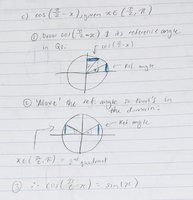 c) cos(π/2 - x), given x ∈ (π/2, π)
① Draw cos(π/2 - x) & its reference angle
in Q1.
cos(π/2 - x)
Ref angle
② 'Move' the ref. angle so that's in
the domain.
Ref. angle
x ∈ (π/2, π) = 2nd quadrant
③ ∴ cos(π/2 - x) = sin(x)